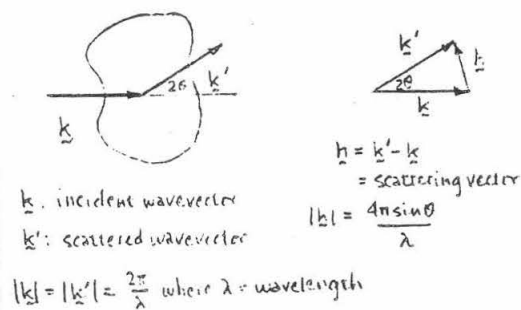 k
2θ
k'
k'
h
2θ
k
h = k' - k
= scattering vector
|h| = 4π sinθ / λ
k: incident wavevector
k': scattered wavevector
|k| = |k'| = 2π / λ where λ = wavelength